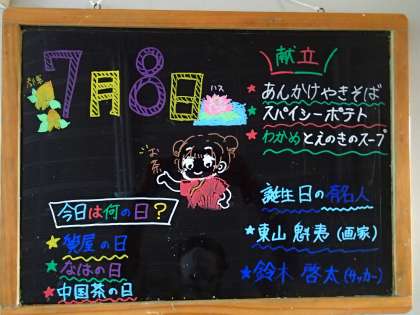 7月8日
ハス
お茶
献立
★あんかけやきそば
★スパイシーポテト
★わかめとえのきのスープ
今日は何の日?
★質屋の日
★なはの日
★中国茶の日
誕生日の有名人
★東山魁夷(画家)
★鈴木啓太(サッカー)